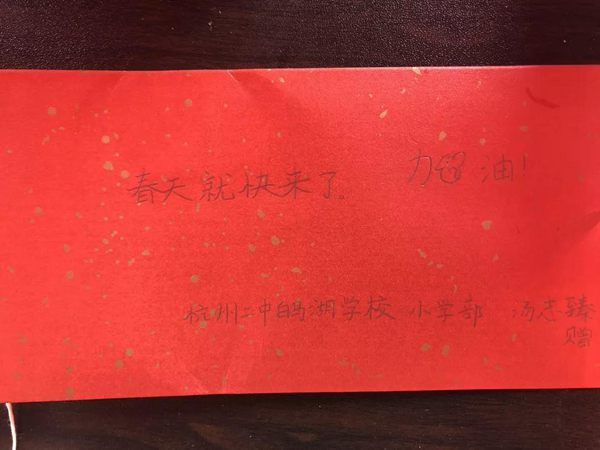 春天就快来了。 加油!
杭州二中白马湖学校 小学部 汤志臻
赠